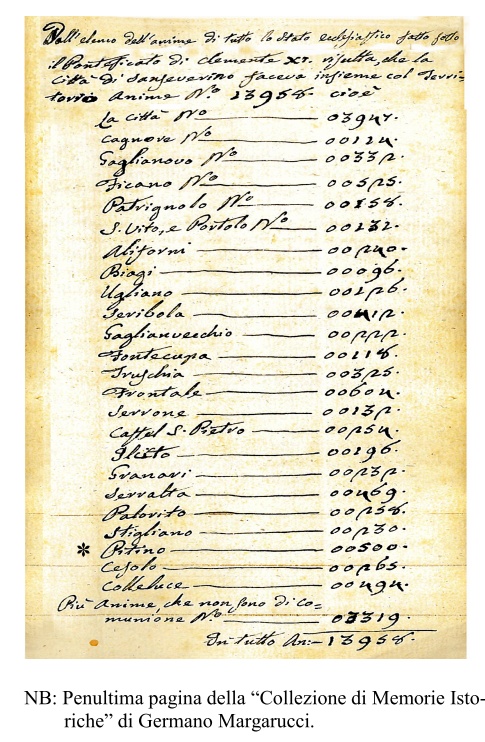 Dall'elenco dell'anime di tutto lo Stato ecclesiastico fatto sotto
il Pontificato di clemente XI. risulta, che la
Città di Sanseverino faceva insieme col Terri-
torio Anime N.º 13958. cioè
La città Nº 03947.
Cagnore Nº 00124.
Gaglianovo Nº 00332.
Ficano Nº 00525.
Patrignolo Nº 00158.
S. Vito, e Portolo Nº 00132.
Aliforni 00240.
Biagi 00096.
Ugliano 00126.
Seribola 00412.
Gaglianvecchio 00222.
Fontecupa 00118.
Truschia 00325.
Frontale 00604.
Serrone 00132.
Castel S. Pietro 00254.
00196.
Granari 00232.
Serralta 00469.
Palorito 00258.
Stigliano 00230.
* Pitino 00500.
Cesolo 00265.
Colleluce 00494.
Più Anime, che non sono di co=
munione Nº 03319.
In tutto An:- 13958.
NB: Penultima pagina della “Collezione di Memorie Isto-
riche” di Germano Margarucci.